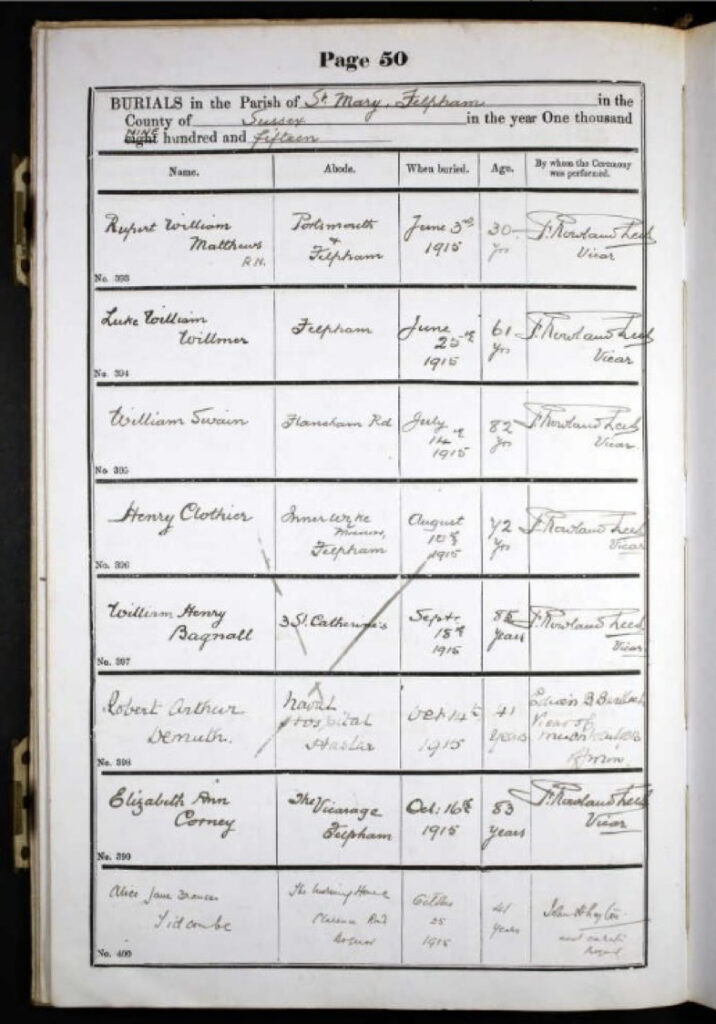 Page 50
BURIALS in the Parish of St Mary, Felpham in the
County of Sussex in the year One thousand
NINE
eight hundred and fifteen
Name. Abode. When buried. Age. By whom the Ceremony was performed.
Rupert William Matthews R.N.
Portsmouth & Felpham
June 3rd 1915
30 Yrs
F. Rowland Vicar
No. 393
Luke William Willmer
Felpham
June 25th 1915
61 Yrs
F. Rowland Vicar
No. 394
William Swain
Flansham Rd
July 14th 1915
82 Yrs
F. Rowland Vicar
No. 395
Henry Clothier
Felpham
August 1915
72 Yrs
F. Rowland Vicar
No. 396
William Henry Bagnall
3 St. Catherine's
Sept. 18th 1915
Years
F. Rowland Vicar
No. 397
Robert Arthur Demuth.
Naval Hospital Haslar
Oct 14th 1915
41 Years
Vicar of
No. 398
Elizabeth Ann Corney
The Vicarage Felpham
Oct: 16th 1915
83 Years
F. Rowland Vicar
No. 399
Alice Jane Frances Titcombe
The Nursing Home Clarence Rd Bognor
October 25 1915
41 Years
John
Bognor
No. 400